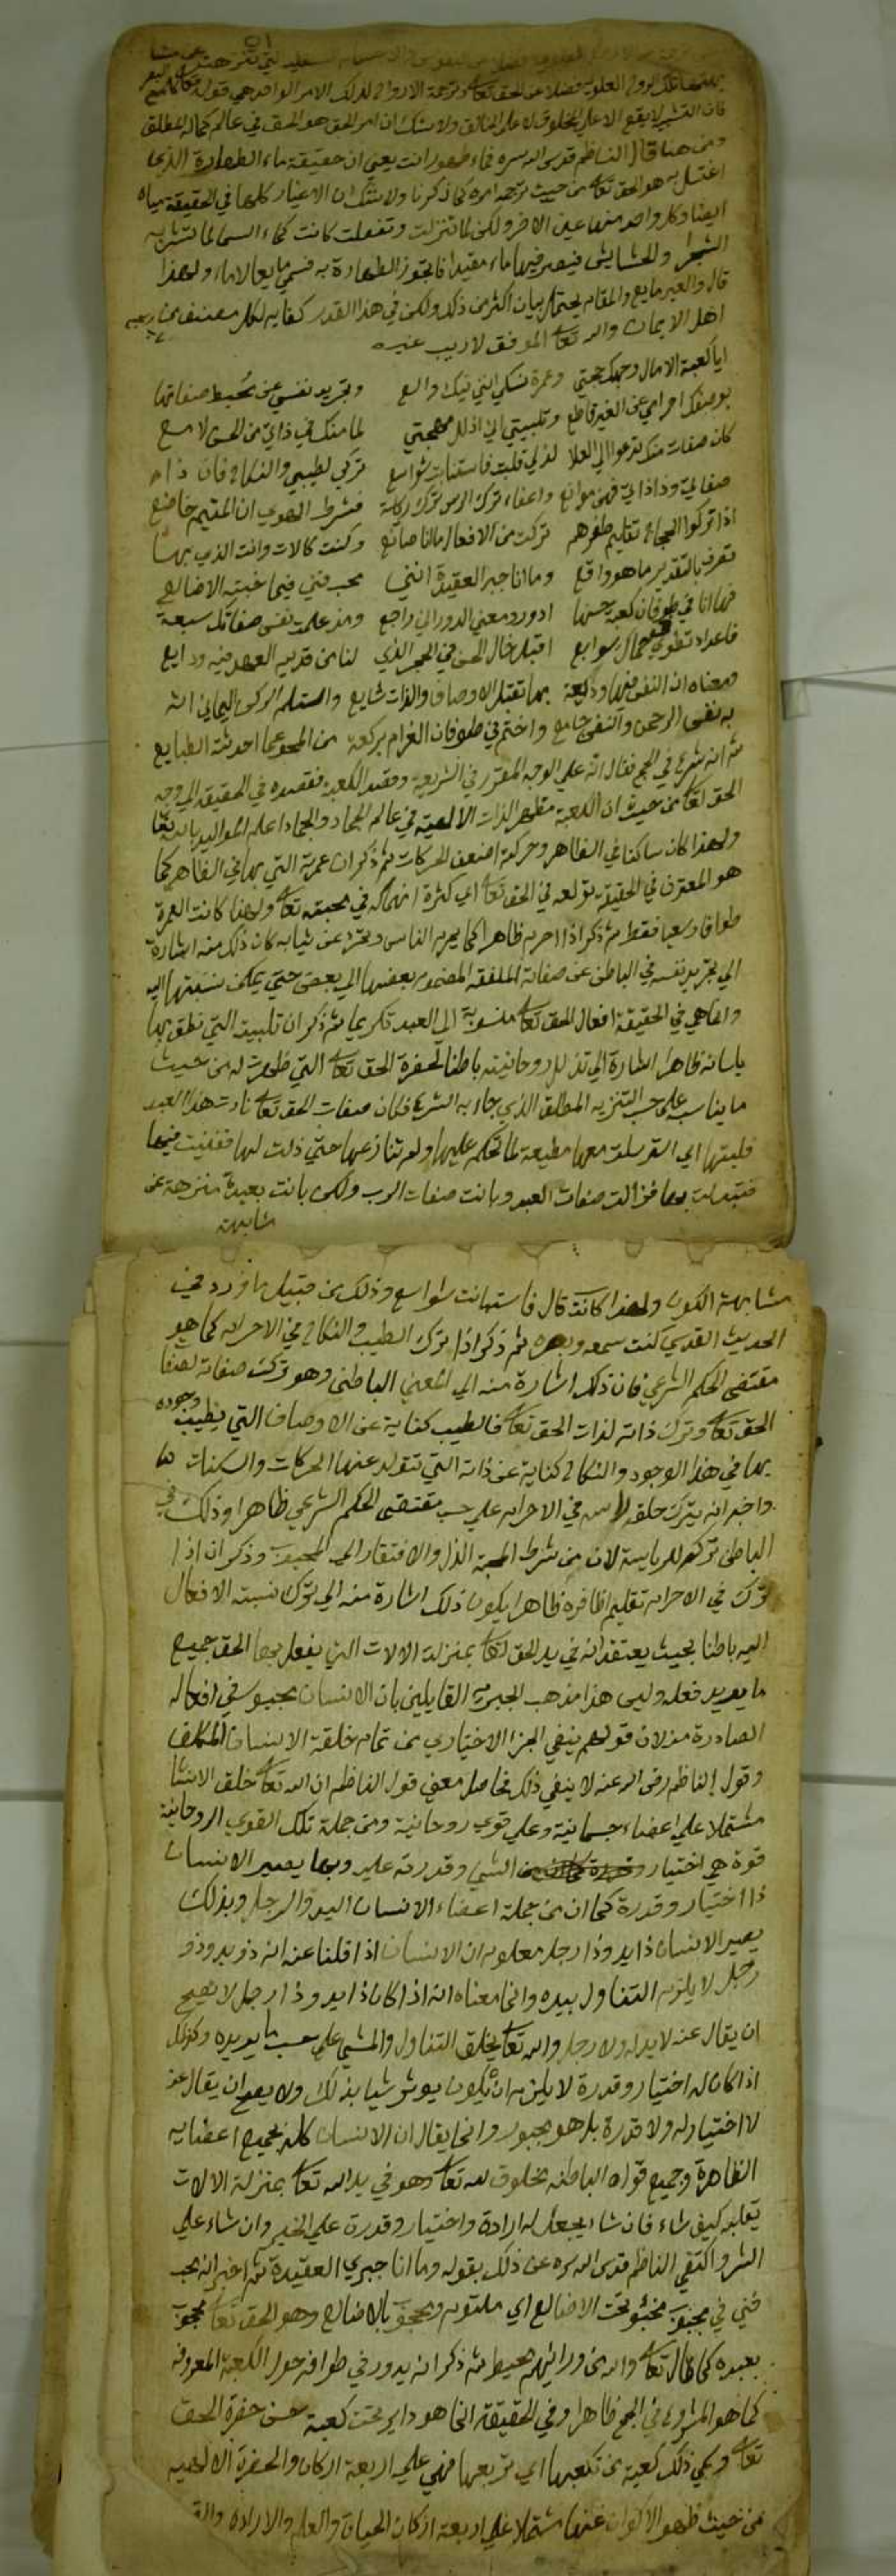 فان القشير لا يقع الاعلي المخلوق لا على الخالق ولا شك ان امر الحق هو الحق في عالم كماله المطلق
ومن هنا قال الناظم قدس الله سره فماء طهور انت يعني ان حقيقة ماء الطهارة الذي
اغتسل به هو الحق تعالى من حيث توجه امره كما ذكرنا ولا شك ان الاغيار كلها في الحقيقة مياه
ايضا وكل واحد منها عين الاخر ولكن لما تنزلت وتفعلت كانت كماء السما لما تشربه
الشجر والحشايش فيصير فيها ماء مقيدا فلا تجوز الطهارة به فسمي مايعا لا ماء ولهذا
قال والغير مايع والمقام يحتمل بيان اكثر من ذلك ولكن في هذا القدر كفاية لكل منصف من
اهل الايمان والله تعالى الموفق لا ريب غيره
ايا كعبة الامال وجهك حجتي وعمرة نسكي انني فيك والع وتجريد نفسي عن مخيط صفاتها
بوصفك احرامي عن الغير قاطع وتلبيتي اني اذلل مهجتي لما منك في ذاتي من الحسن لامع
كان صفات منك تدعو الي العلا لذلي قلبت فاستبانت شواسع تركي لطيبي والنكاح فان ذا
صفاتي وذا ذاتي فهن موانع واعفاء ترك الراس ترك رياسة فشرط الهوي ان المتيم خاضع
اذا تركوا الحجاج تقليم ظفرهم تركت من الافعال ما انا صانع وكنت كالات وانت الذي بها
تصرف بالتقدير ما هو واقع وما انا جبري العقيدة انني محب فني فيما خبته الاضالع
فها انا في طوفان كعبة حسنها ادور ومعني الدور اني راجع ومذ علمت نفسي صفاتك سبعة
فاعداد تطوافي جمال سوابع اقبل خال الحسن في الحجر الذي لنا من قديم العهد فيه ودايع
ومعناه ان النفس فيها وديعة بها تقبل الاوصاف والذات شايع واستلم الركن اليماني انه
به نفس الرحمن والنفس جامع واختم في طوفان الغرام بركعة من المحو عما احدثته الطبايع
ثم انه شرع في الحج فقال انه علي الوجه المقرر في الشريعة وقصد الكعبة فقصده في الحقيقة الي وجه
الحق تعالى من حيث ان الكعبة مظهر الذات الالهية في عالم الجماد والجماد اعلى المواليد
ولهذا كان ساكنا في الظاهر وحركته اضعف الحركات ثم ذكر ان عمرته التي بها في الظاهر كما
هو المعترف في الحقيقة تولعه في الحق تعالى اي كثرة انهماكه في محبته تعالى ولهذا كانت العمرة
طوافا وسعيا فقط ثم ذكر اذا احرم ظاهرا كما يحرم الناس وتجرد عن ثيابه كان ذلك منه اشارة
الي تجريد نفسه في الباطن عن صفاته الملفقة المضموم بعضها الي بعض حتي يمكن نسبتها اليه
وانما هي في الحقيقة افعال الحق تعالى منسوبة الي العبد تكريما ثم ذكر ان تلبيته التي نطق بها
بلسانه ظاهرا اشارة الي تذلل روحانيته باطنا لحضرة الحق تعالى التي ظهرت له من حيث
ما يناسب علي حسب التنزيه المطلق الذي جاء به الشرع فكان صفات الحق تعالى نادت هذا العبد
فلبتها اي استرسلت معها مطيعة لما تحكم عليها ولم تنازعها حتي ذلت لها ففنيت فيها
فتبدلت بها فزالت صفات العبد وبانت صفات الرب ولكن بانت بعيدة منزهة عن
مشابهة
مشابهة الكون ولهذا كانت قال فاستبانت شواسع وذلك من قبيل ما ورد في
الحديث القدسي كنت سمعه وبصره ثم ذكر اذا ترك الطيب والنكاح في الاحرام كما هو
مقتضي الحكم الشرعي فان ذلك اشارة منه الي المعني الباطني وهو ترك صفاته لصفات
الحق تعالى وترك ذاته لذات الحق تعالى فالطيب كناية عن الاوصاف التي يطيب وجوده
بها في هذا الوجود والنكاح كناية عن ذاته التي تتولد عنها الحركات والسكنات
واخبر انه يترك حلقه لراس في الاحرام علي حسب مقتضي الحكم الشرعي ظاهرا وذلك في
الباطن تركه للرياسة لان من شرط المحبة الذل والافتقار الي المحبوب وذكر ان اذا
ترك في الاحرام تقليم اظافره ظاهرا يكون ذلك اشارة منه الي ترك نسبة الافعال
اليه باطنا بحيث يعتقد انه في يد الحق تعالى بمنزلة الالات التي يفعل بها الحق جميع
ما يريد فعله وليس هذا مذهب الجبرية القايلين بان الانسان مجبور في افعاله
الصادرة منه لان قولهم ينفي الجزا الاختياري من تمام خلقة الانسان المكلف
وقول الناظم رضي الله عنه لا ينفي ذلك فحاصل معني قول الناظم ان الله تعالى خلق الانسان
مشتملا علي اعضاء جسمانية وعلي قوي روحانية ومن جملة تلك القوي الروحانية
قوة هي اختيار الشي وقدرته عليه وبها يصير الانسان
ذا اختيار وقدرة كما ان من جملة اعضاء الانسان اليد والرجل وبذلك
يصير الانسان ذا يد وذا رجل معلوم ان الانسان اذا قلنا عنه انه ذو يد وذو
رجل لا يلزم التناول بيده وانما معناه انه اذا كان ذا يد وذا رجل لا يصح
ان يقال عنه لا يد له ولا رجل والله تعالى يخلق التناول والمشي علي حسب ما يريده وكذلك
اذا كان له اختيار وقدرة لا يلزم ان يكون يوثر شيا بذلك ولا يصح ان يقال عنه
لا اختيار له ولا قدرة بل هو مجبور وانما يقال ان الانسان كله بجميع اعضايه
الظاهرة وجميع قواه الباطنه مخلوق لله تعالى وهو في يد الله تعالى بمنزلة الالات
يقلبه كيف شاء فان شا يجعل له ارادة واختيار وقدرة علي الخير وان شاء علي
الشر واكتفي الناظم قدس الله سره عن ذلك بقوله وما انا جبري العقيدة ثم اخبر انه محب
فني في محبوب مخبؤ تحت الاضالع اي ملتوم ومحجوب بالاضالع وهو الحق تعالى محجوب
بعبده كما قال تعالى والله من ورائهم محيط ثم ذكر انه يدور في طوافه حول الكعبة المعروفة
كما هو المشروع في الحج ظاهرا وفي الحقيقة انما هو داير تحت كعبة حسن حضرة الحق
تعالى وسمي ذلك كعبة من تكعبها اي تربعها فهي علي اربعة اركان والحضرة الالهيه
من حيث ظهور الاكوان عنها مشتملة علي اربعة اركان الحياة والعلم والارادة